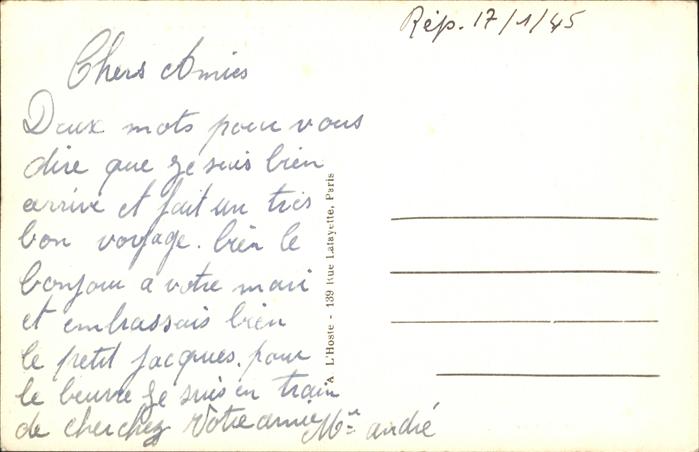 Rép. 17/1/45
Chers Amies
Deux mots pour vous
dire que Je suis bien
arrivé et fait un tres
bon voyage. bien le
bonjour a votre mari
et embrassais bien
le petit Jacques. pour
le beurre Je suis en train
de cherchez Votre amie Mme andré
A L'Hoste - 139 Rue Lafayette, Paris